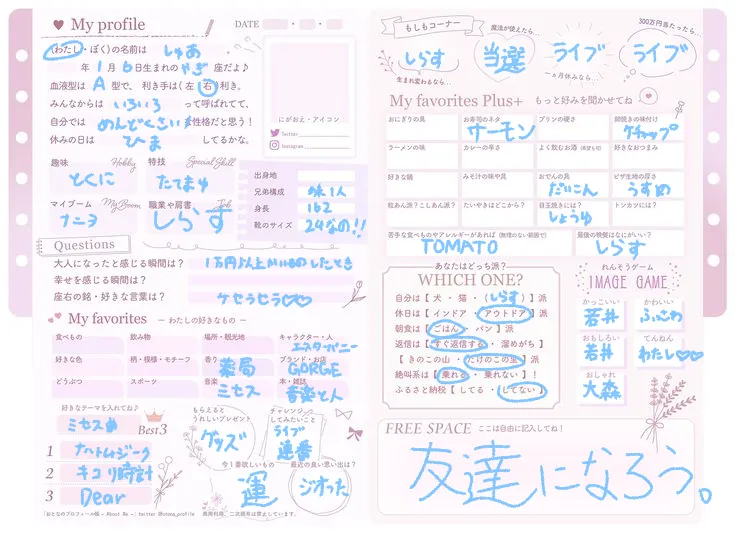 My profile
DATE
(わたし・ぼく)の名前は しゅあ
年 1月 6日生まれの やぎ 座だよ♪
血液型は A 型で、利き手は(左・右)利き。
みんなからは いろいろ って呼ばれてて、
自分では めんどくさい 性格だと思う!
休みの日は ひま してるかな。
にがおえ・アイコン
Twitter
Instagram
趣味 Hobby
とくに
特技 Special Skill
たてまゆ
マイブーム My Boom
職業や肩書 Job
しらす
出身地
兄弟構成 妹1人
身長 162
靴のサイズ 24なの!!
Questions
大人になったと感じる瞬間は? 1万円以上かいものしたとき
幸せを感じる瞬間は?
座右の銘・好きな言葉は? ケセラセラ♡♡
My favorites ― わたしの好きなもの ―
食べもの
飲みもの
場所・観光地
キャラクター・人
エスターバニー
好きな色
柄・模様・モチーフ
香り
薬局
ブランド・お店
GORGE
どうぶつ
スポーツ
音楽
ミセス
本・雑誌
音楽と人
好きなテーマを入れてね♪
ミセス曲 Best3
1 ナハトムジーク
2 キコリ時計
3 Dear
もらえると
うれしいプレゼント
グッズ
チャレンジ
してみたいこと
ライブ
連番
今1番欲しいもの
運
最近の良い思い出は?
ジオった
「おとなのプロフィール帳 - About Me -」twitter @otona_profile 商用利用、二次頒布は禁止しています。
もしもコーナー
しらす
生まれ変わるなら…
魔法が使えたら…
当選
ライブ
一ヶ月休みなら…
300万円当たったら…
ライブ
My favorites Plus+ もっと好みを聞かせてね
おにぎりの具
お寿司のネタ
サーモン
プリンの硬さ
卵焼きの味付け
ケチャップ
ラーメンの味
カレーの辛さ
よく飲むお酒
好きなおつまみ
好きな鍋
みそ汁の味や具
おでんの具
だいこん
ピザ生地の厚さ
うすめ
粒あん派?こしあん派?
たいやきはどこから?
目玉焼きには?
しょうゆ
トンカツには?
苦手な食べものやアレルギーがあれば(無理のない範囲で)
TOMATO
最後の晩餐はなにがいい?
しらす
あなたはどっち派?
WHICH ONE?
自分は【 犬 ・ 猫 ・ (しらす) 】派
休日は【 インドア ・ アウトドア 】派
朝食は【 ごはん ・ パン 】派
返信は【 すぐ返信する ・ 溜めがち 】
【 きのこの山 ・ たけのこの里 】派
絶叫系は【 乗れる ・ 乗れない 】!
ふるさと納税【 してる ・ してない 】
れんそうゲーム
IMAGE GAME
かっこいい
若井
かわいい
ふっさわ
おもしろい
若井
てんねん
わたし♡♡
おしゃれ
大森
FREE SPACE ここは自由に記入してね!
友達になろう。